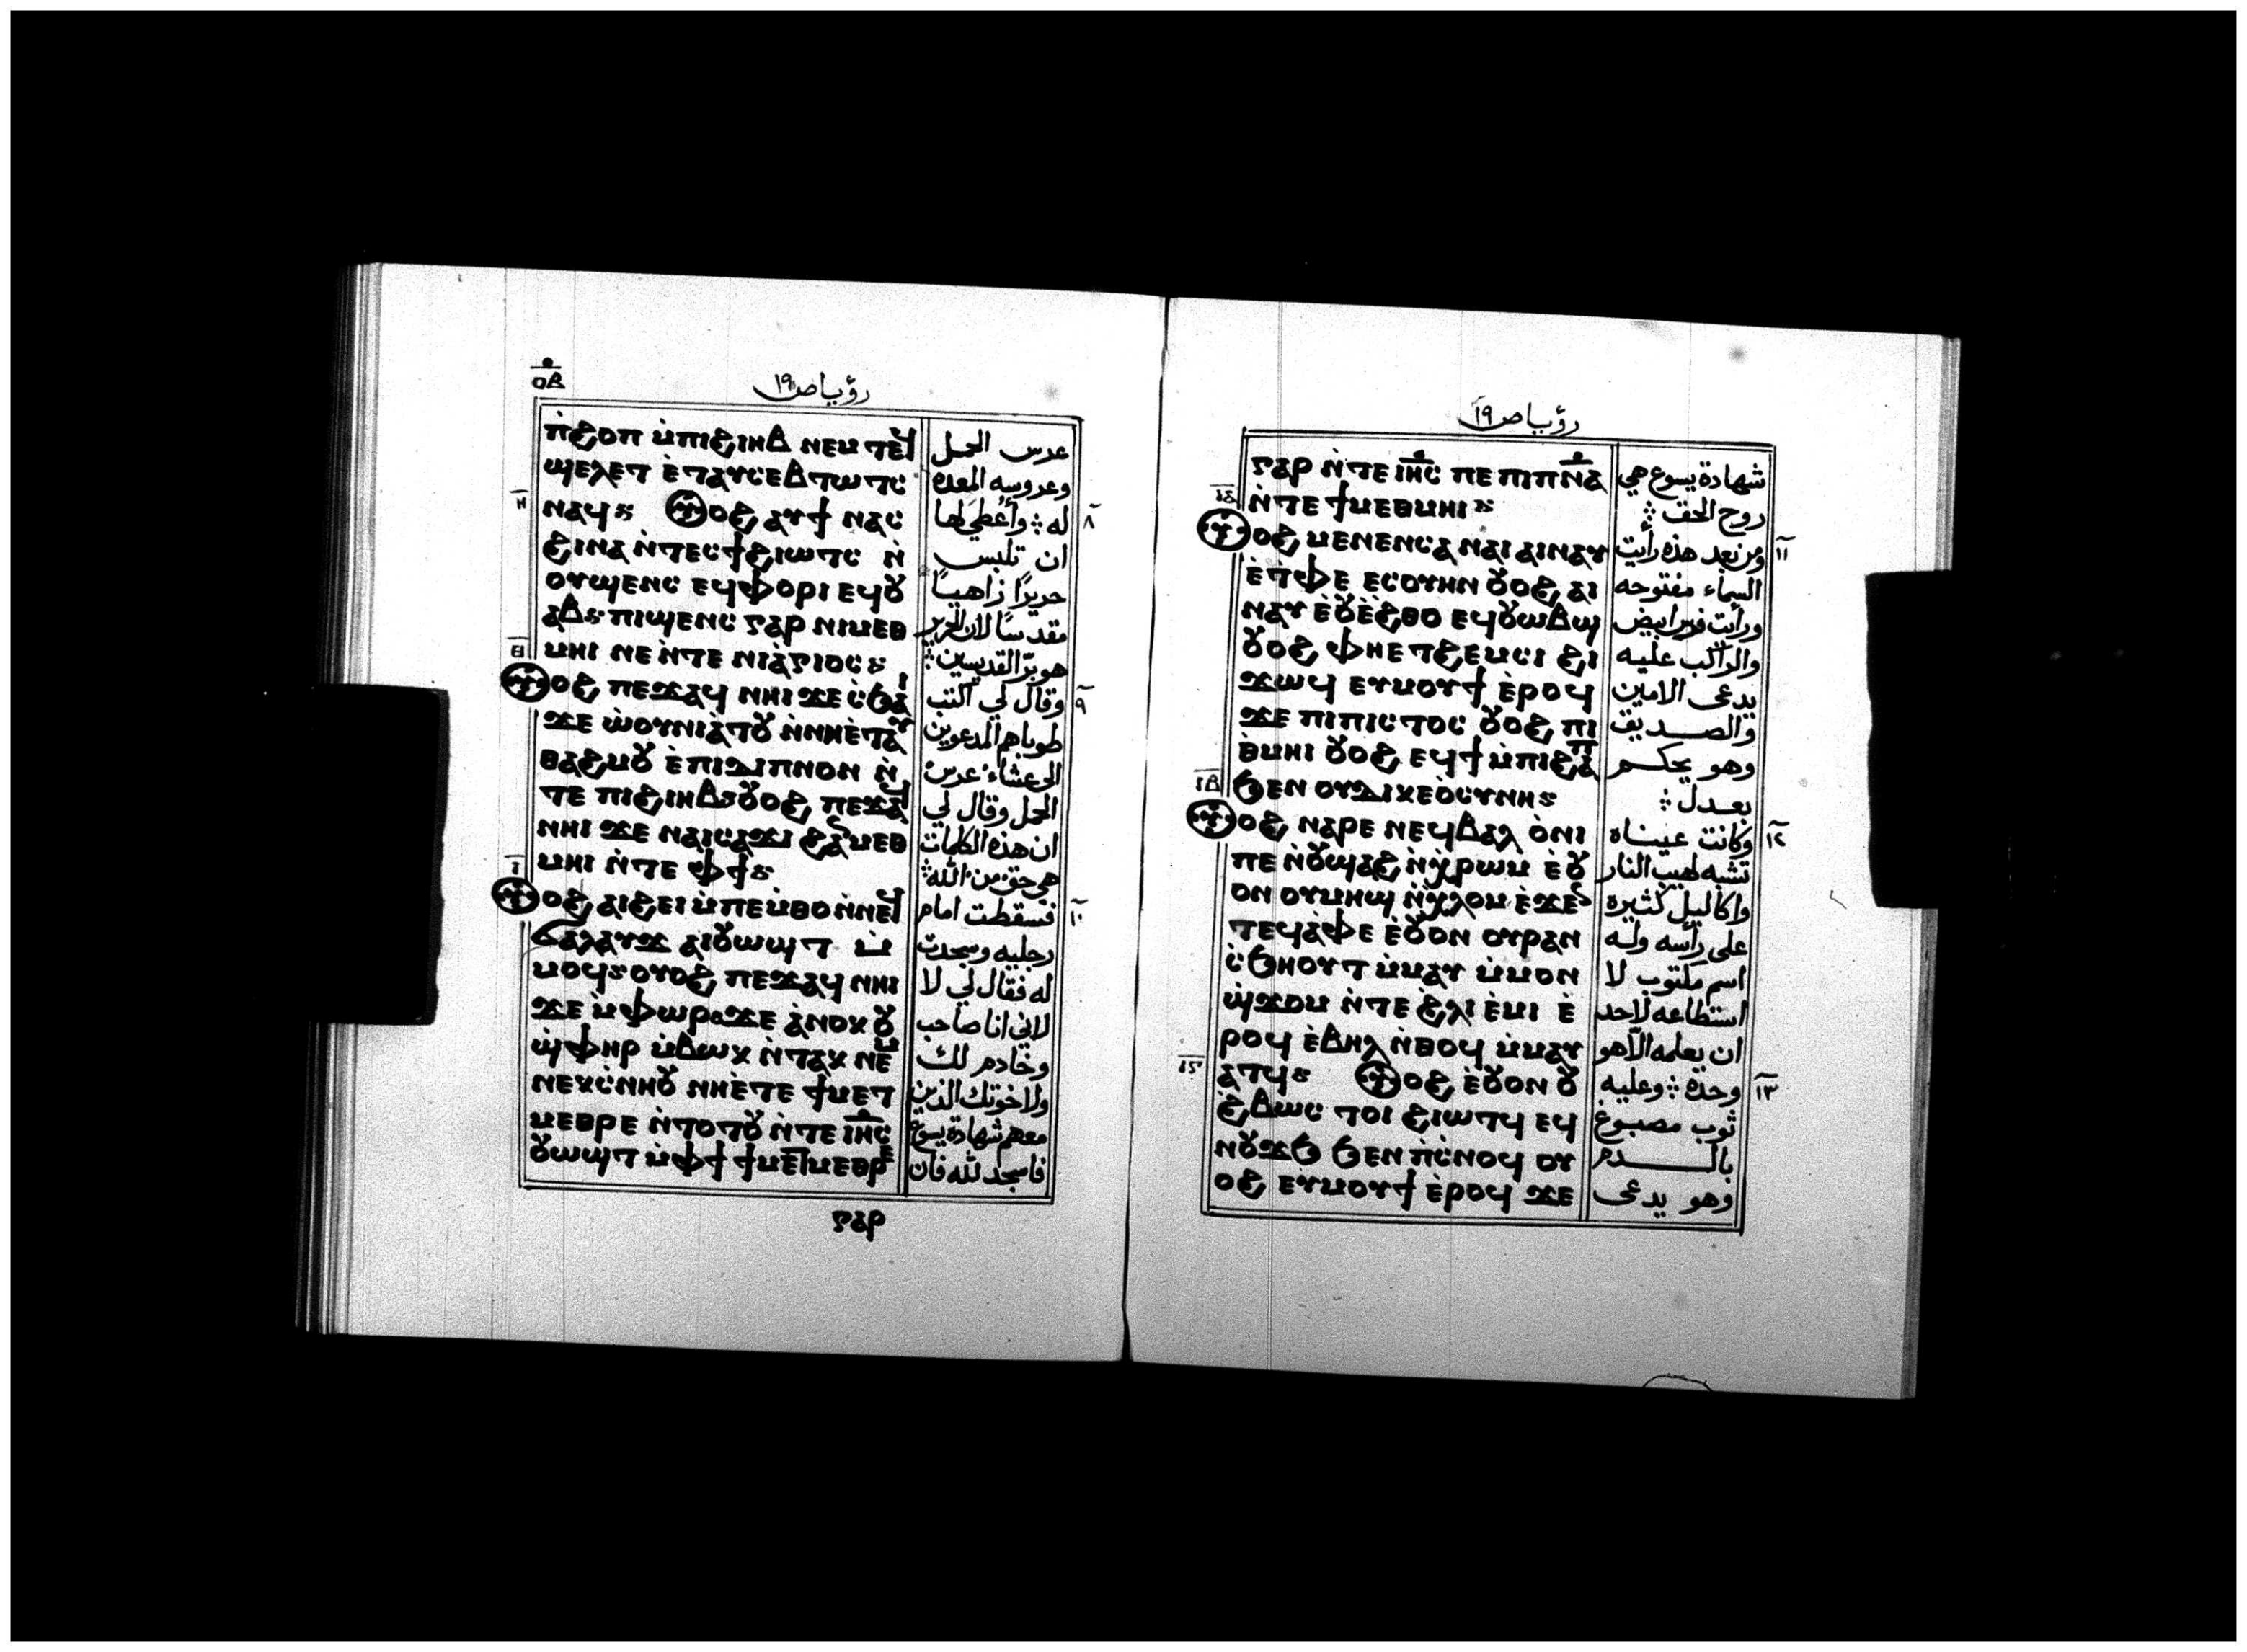 ⲟⲃ
رؤيا ص ١٩
ⲛ̀ϩⲟⲡ ⲙ̀ⲡⲓϩⲓⲏⲃ ⲛⲉⲙ ⲧⲉϥ
ϣⲉⲗⲉⲧ ⲉ̀ⲧⲁⲩⲥⲉⲃⲧⲱⲧⲥ
ⲏ ⲛⲁϥ ⲟϩ ⲁⲩϯ ⲛⲁⲥ
ϩⲓⲛⲁ ⲛ̀ⲧⲉⲥϯϩⲓⲱⲧⲥ ⲛ̀
ⲟⲩϣⲉⲛⲥ ⲉϥⲫⲟⲣⲓ ⲉϥⲟⲩ
ⲁⲃ ⲡⲓϣⲉⲛⲥ ⲅⲁⲣ ⲛⲓⲙⲉⲑ
ⲑ ⲙⲏⲓ ⲛⲉ ⲛ̀ⲧⲉ ⲛⲓⲁ̀ⲅⲓⲟⲥ
ⲟϩ ⲡⲉϫⲁϥ ⲛⲏⲓ ϫⲉ ⲥ̀ϧⲁⲓ
ϫⲉ ⲱ̀ⲟⲩⲛⲓⲁ̀ⲧⲟⲩ ⲛ̀ⲛⲏⲉ̀ⲧⲁⲩ
ⲑⲁϩⲙⲟⲩ ⲉ̀ⲡⲓⲇⲓⲡⲛⲟⲛ ⲛ̀
ⲧⲉ ⲡⲓϩⲓⲏⲃ ⲟⲩⲟϩ ⲡⲉϫⲁϥ
ⲛⲏⲓ ϫⲉ ⲛⲁⲓⲥⲁϫⲓ ϩⲁⲛⲙⲉⲑ
ⲙⲏⲓ ⲛ̀ⲧⲉ ⲫϯ
ⲓ ⲟϩ ⲁⲓϩⲉⲓ ⲙ̀ⲡⲉⲙ̀ⲑⲟ ⲛ̀ⲛⲉϥ
ϭⲁⲗⲁⲩϫ ⲁⲓⲟⲩⲱϣⲧ ⲙ̀
ⲙⲟϥ ⲟⲩⲟϩ ⲡⲉϫⲁϥ ⲛⲏⲓ
ϫⲉ ⲙ̀ⲫⲱⲣ ϫⲉ ⲁ̀ⲛⲟⲕ ⲟⲩ
ϣ̀ⲫⲏⲣ ⲙ̀ⲃⲱⲕ ⲛ̀ⲧⲁⲕ ⲛⲉⲙ
ⲛⲉⲕⲥ̀ⲛⲏⲟⲩ ⲛⲏⲉ̀ⲧⲉ ϯⲙⲉⲧ
ⲙⲉⲑⲣⲉ ⲛ̀ⲧⲟⲧⲟⲩ ⲛ̀ⲧⲉ ⲓⲏⲥ
ⲟⲩⲱϣⲧ ⲙ̀ⲫϯ ϯⲙⲉⲧⲙⲉⲑⲣⲉ
ⲅⲁⲣ
عرس الحمل
وعروسه المعده
٨ له ؞ وأُعطيَ لها
ان تلبس
حريرًا زاهيًا
مقدسًا لان الحرير
هو برّ القديسين ؞
٩ وقال لي اكتب
طوباهم المدعوين
الى عشاء عرس
الحمل وقال لي
ان هذه الكلمات
هي حق من الله ؞
١٠ فسقطت امام
رجليه وسجدت
له فقال لي لا
لاني انا صاحب
وخادم لك
ولاخوتك الذين
معهم شهادة يسوع
فاسجد لله فان
رؤيا ص ١٩
ⲅⲁⲣ ⲛ̀ⲧⲉ ⲓⲏⲥ ⲡⲉ ⲡⲓⲡⲛⲁ
ⲓⲁ ⲛ̀ⲧⲉ ϯⲙⲉⲑⲙⲏⲓ
ⲟϩ ⲙⲉⲛⲉⲛⲥⲁ ⲛⲁⲓ ⲁⲓⲛⲁⲩ
ⲉ̀ⲧ̀ⲫⲉ ⲉⲥⲟⲩⲏⲛ ⲟⲩⲟϩ ⲁⲓ
ⲛⲁⲩ ⲉ̀ⲟⲩⲉ̀ϩⲑⲟ ⲉϥⲟⲩⲱⲃϣ
ⲟⲩⲟϩ ⲫⲏⲉⲧϩⲉⲙⲥⲓ ϩⲓ
ϫⲱϥ ⲉⲩⲙⲟⲩϯ ⲉ̀ⲣⲟϥ
ϫⲉ ⲡⲓⲡⲓⲥⲧⲟⲥ ⲟⲩⲟϩ ⲡⲓ
ⲑ̀ⲙⲏⲓ ⲟⲩⲟϩ ⲉϥϯ ⲙ̀ⲡⲓϩⲁⲡ
ⲓⲃ ϧⲉⲛ ⲟⲩⲇⲓⲕⲉⲟ̀ⲥⲩⲛⲏ
ⲟϩ ⲛⲁⲣⲉ ⲛⲉϥⲃⲁⲗ ⲟ̀ⲛⲓ
ⲡⲉ ⲛ̀ⲟⲩϣⲁϩ ⲛ̀ⲭ̀ⲣⲱⲙ ⲉ̀ⲟⲩ
ⲟⲛ ⲟⲩⲙⲏϣ ⲛ̀ⲭ̀ⲗⲟⲙ ⲉ̀ϫⲉⲛ
ⲧⲉϥⲁ̀ⲫⲉ ⲉ̀ⲟⲩⲟⲛ ⲟⲩⲣⲁⲛ
ⲥ̀ϧⲏⲟⲩⲧ ⲙ̀ⲙⲁⲩ ⲙ̀ⲙⲟⲛ
ϣ̀ϫⲟⲙ ⲛ̀ⲧⲉ ϩ̀ⲗⲓ ⲉ̀ⲙⲓ ⲉ̀
ⲣⲟϥ ⲉ̀ⲃⲏⲗ ⲛ̀ⲑⲟϥ ⲙ̀ⲙⲁⲩ
ⲓⲅ ⲁⲧϥ ⲟϩ ⲉ̀ⲟⲩⲟⲛ ⲟⲩ
ϩ̀ⲃⲱⲥ ⲧⲟⲓ ϩⲓⲱⲧϥ ⲉϥ
ⲛⲟⲩϫϧ ϧⲉⲛ ⲡ̀ⲥ̀ⲛⲟϥ ⲟⲩ
ⲟϩ ⲉⲩⲙⲟⲩϯ ⲉ̀ⲣⲟϥ ϫⲉ
شهادة يسوع هي
روح الحق ؞
١١ ومن بعد هذه رأيت
السماء مفتوحه
ورأيت فرس ابيض
والراكب عليه
يدعى الامين
والصديق
وهو يحكم
بعدل ؞
١٢ وكانت عيناه
تشبه لهيب النار
واكاليل كثيره
على رأسه وله
اسم مكتوب لا
استطاعه لاحد
ان يعلمه الا هو
١٣ وحده ؞ وعليه
ثوب مصبوغ
بالدم
وهو يدعى